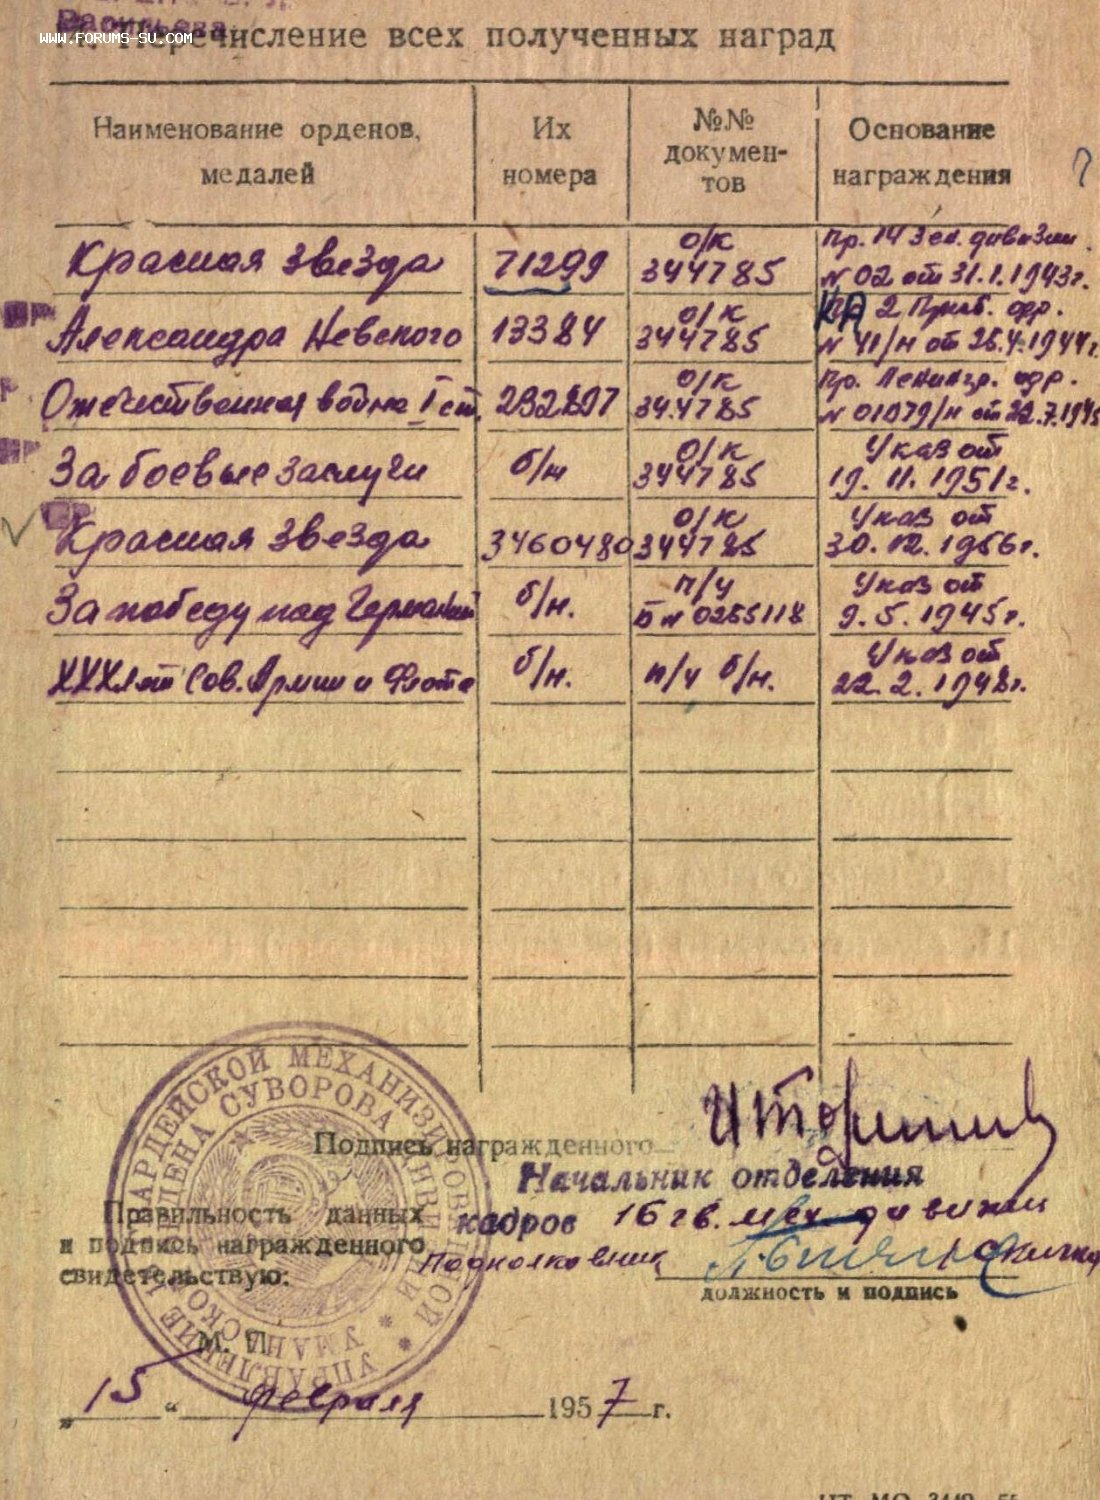 Васильева
WWW.FORUMS-SU.COM
Перечисление всех полученных наград
Наименование орденов, медалей
Их номера
№№ докумен-тов
Основание награждения
Красная звезда 71299 о/к 344785 Пр. 14 Зен. дивизии № 02 от 31.1.1943г.
Александра Невского 13384 о/к 344785 2 Приб. фр. № 41/н от 25.4.1944г.
Отечественная война I ст. 232897 о/к 344785 Пр. Ленингр. фр. № 01079/н от 22.7.1945
За боевые заслуги б/н о/к 344785 Указ от 19.11.1951г.
Красная звезда 3460480 о/к 344785 Указ от 30.12.1956г.
За победу над Германией б/н. п/у Б № 0265118 Указ от 9.5.1945г.
XXX лет Сов. Армии и Флота б/н. п/у б/н. Указ от 22.2.1948г.
Подпись награжденного
Начальник отделения
Правильность данных
кадров 16 гв. мех. дивизии
и подпись награжденного
Подполковник
свидетельствую:
должность и подпись
М. П.
„15“ февраля 1957 г.
УПРАВЛЕНИЕ 16 ГВАРДЕЙСКОЙ МЕХАНИЗИРОВАННОЙ
УМАНСКОЙ ОРДЕНА СУВОРОВА ДИВИЗИИ